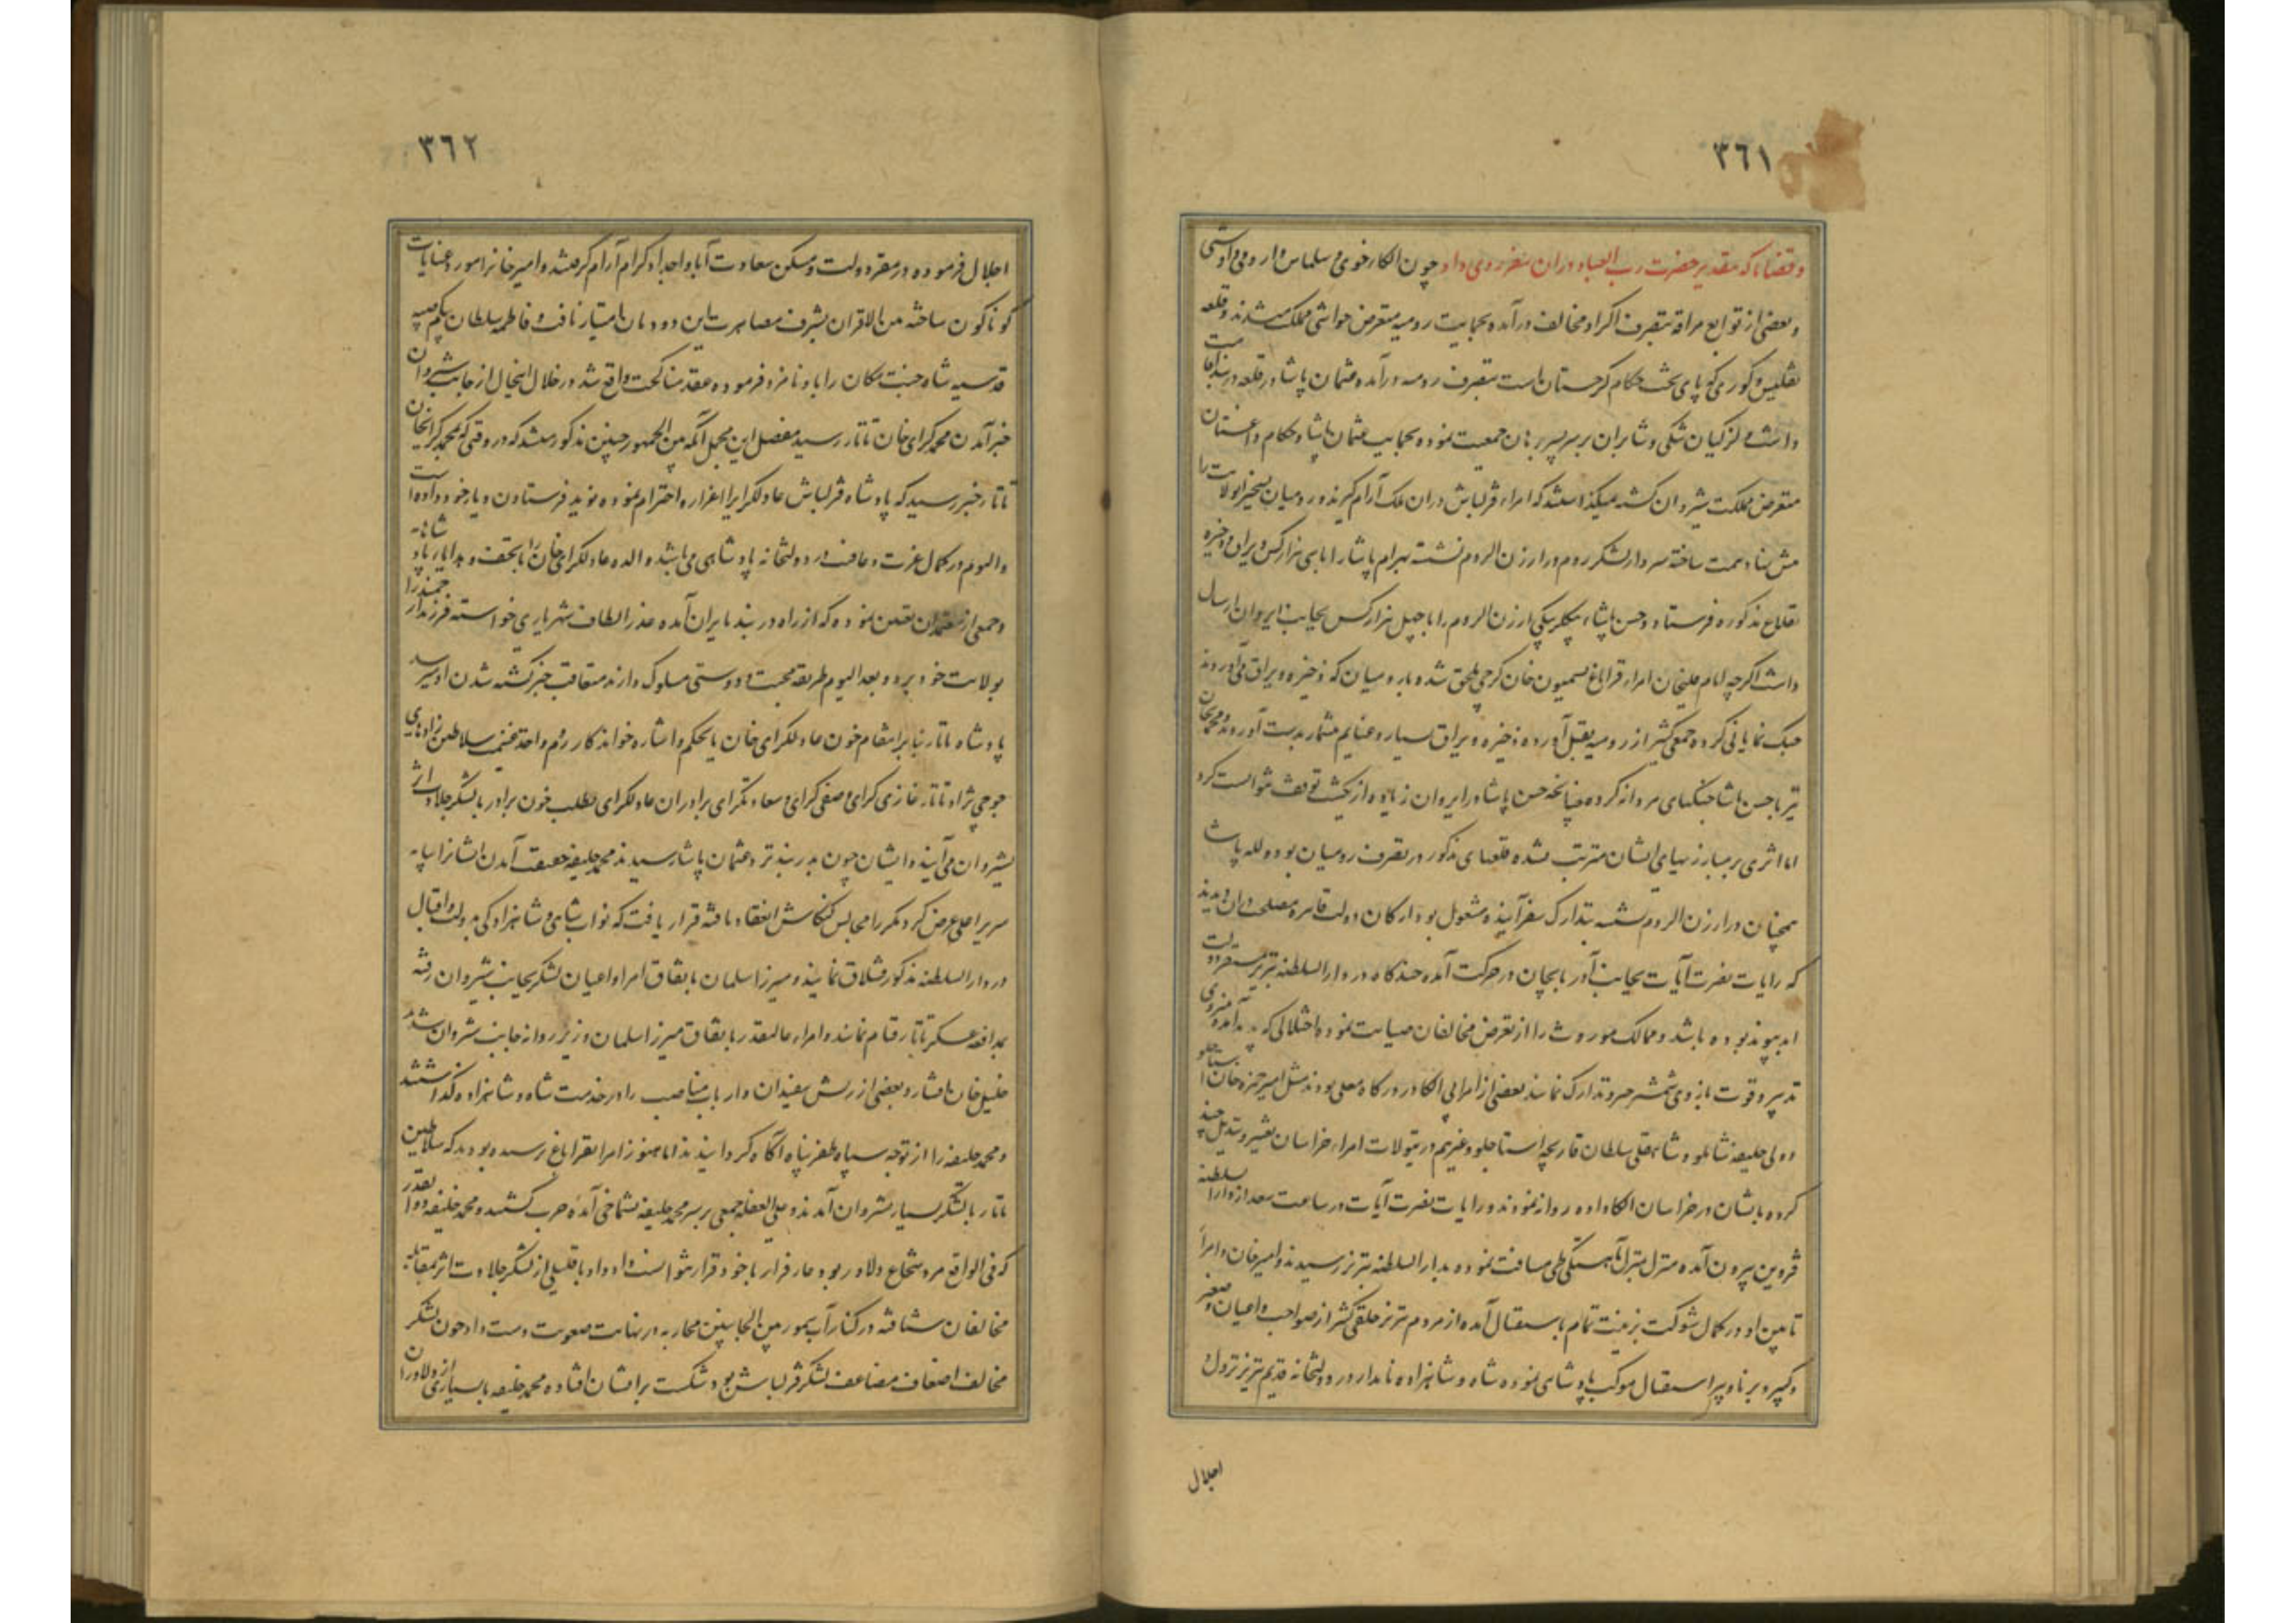 ٣٦١
و قضایا که بتقدیر حضرت رب العباد در آن سفر روی داد چون الکاء خوی و سلماس و ارومی و اوشنی
و بعضی از توابع مراغه بتصرف اکراد مخالف درآمده بحمایت رومیه متعرض حواشی مملکت میشدند و قلعه
تفلیس و کوری که پای تخت حکام کرجستان است بتصرف رومیه درآمده عثمان پاشا در قلعه دربند اقامت
داشت و لزکیان شکی و شابران بر سر پسر برهان جمعیت نموده بحمایت عثمان پاشا و حکام داغستان
متعرض مملکت شیروان کشته نمیکذاشتند که امراء قزلباش در آن ملک آرام کیرند و رومیان تسخیر آن ولایت را
پیش نهاد همت ساخته سردار لشکر روم در ارزن الروم نشسته بهرام پاشا را با سی هزار کس و یراق و ذخیره
بقلاع مذکوره فرستاد و حسن پاشاء بیکلربیکی ارزن الروم را با چهل هزار کس بجانب ایروان ارسال
داشت اکرچه امام قلیخان امراء قراباغ بسمیون خان کرجی ملحق شده با رومیان که ذخیره و یراق می آوردند
جنک نمایانی کرده جمعی کثیر از رومیه بقتل آورده ذخیره و یراق بسیار و غنایم بیشمار بدست آوردند و محمدیخان
نیز با حسن پاشا جنکهای مردانه کرده چنانچه حسن پاشا در ایروان زیاده از یکشب توقف نتوانست کرد
اما اثری بر مبارزیهای ایشان مترتب نشده قلعهای مذکور در تصرف رومیان بود و لله پاشا
همچنان در ارزن الروم نشسته بتدارک سفر آینده مشغول بود ارکان دولت قاهره مصلحت در آن دیدند
که رایات نصرت آیات بجانب آذربایجان در حرکت آمده چندکاه در دارالسلطنه تبریز مستقر دولت
ابد پیوند بوده باشد و ممالک موروث را از تعرض مخالفان صیانت نموده اختلالی که پدید آمده بنیروی
تدبیر و قوت بازوی شمشیر تدارک نمایند بعضی از امرا بی الکا در درکاه معلی بودند مثل امیر حمزه خان استاجلو
و ولی خلیفه شاملو و شاهقلی سلطان قارنجه استاجلو و غیرهم در تیولات امراء خراسان تغییر و تبدیل چند
کرده بایشان در خراسان الکا داده روانه نمودند و رایات نصرت آیات در ساعت سعد از دارالسلطنه
قزوین بیرون آمده منزل بمنزل بآهستکی طی مسافت نموده بدارالسلطنه تبریز رسیدند و امیرخان و امراء
تابین او در کمال شوکت بزینت تمام باستقبال آمده از مردم تبریز خلقی کثیر از صواحب و اعیان و صغیر
و کبیر و برنا و پیر استقبال موکب پادشاهی نموده شاه و شاهزاده نامدار در دولتخانه قدیم تبریز نزول
اجلال
٣٦٢
اجلال فرموده در مقر دولت و مسکن سعادت آباء و اجداد کرام آرام کرفتند و امیرخان را مورد عنایات
کوناکون ساخته من الاقران بشرف مصاهرت این دودمان امتیاز یافت و فاطمه سلطان بیکم صبیه
قدسیه شاه جنت مکان را باو نامزد فرموده عقد مناکحت واقع شد در خلال اینحال از جانب شیروان
خبر آمدن محمد کرای خان تاتار رسید مفصل این مجمل آنکه بین الجمهور چنین مذکور میشد که در وقتی که محمد کرایخان
تاتار خبر رسید که پادشاه قزلباش عادلکرای را اعزاز و احترام نموده نوید فرستادن دیار خود داده است
والیوم در کمال عزت و عافیت در دولتخانه پادشاهی می باشد والده عادلکرای خان را با تحف و هدایاء پادشاهانه
و جمعی از معتمدان تعیین نموده که از راه دربند بایران آمده عذر الطاف شهریاری خواسته فرزند ارجمند را
بولایت خود برد و بعد الیوم طریقه محبت و دوستی مسلوک دارند متعاقب خبر کشته شدن او رسید
پادشاه تاتار بنابر انتقام خون عادلکرای خان یا بحکم و اشاره خواندکار روم واحد علیهم سلاطین زادهای
جوجی نژاد تاتار غازی کرای و صفی کرای و سعادتکرای برادران عادلکرای بطلب خون برادر با لشکر جلادت اثر
بشیروان می آیند و ایشان چون بدربند نزد عثمان پاشا رسیدند محمد خلیفه حقیقت آمدن ایشان را بپایه
سریر اعلی عرض کرد مکررا مجالس کنکاش انعقاد یافته قرار یافت که نواب شاهی و شاهزادکی بدولت و اقبال
در دارالسلطنه مذکور قشلاق نمایند و میرزا سلمان باتفاق امرا و اعیان لشکر بجانب شیروان رفته
بمدافعه عسکر تاتار قیام نمایند و امراء عالیمقدر باتفاق میرزا سلمان وزیر روانه جانب شیروان شدند
خلیل خان افشار و بعضی از ریش سفیدان و ارباب مناصب را در خدمت شاه و شاهزاده کذاشتند
و محمد خلیفه را از توجه سپاه ظفرپناه آکاه کردانیدند اما هنوز امرا بقراباغ نرسیده بودند که سلاطین
تاتار با لشکر بسیار بشیروان آمدند و علی الغفله جمعی بر سر محمد خلیفه بشماخی آمده حرب کشیدند و محمد خلیفه ذوالقدر
که فی الواقع مرد شجاع دلاور بود عار فرار باخود قرار نتوانست داد و با قلیلی از لشکر جلادت اثر بمقابله
مخالفان شتافته در کنار آب بین الجانبین محاربه در نهایت صعوبت دست داد چون لشکر
مخالف اضعاف مضاعف لشکر قزلباش بود شکست بر ایشان افتاده محمد خلیفه با بسیاری از دلاوران